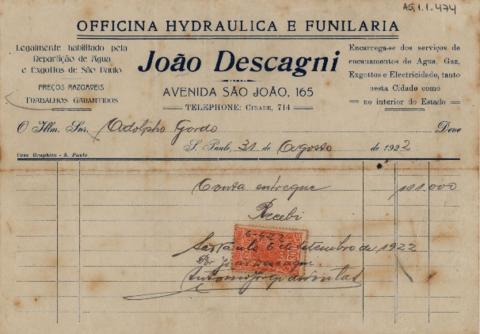 AS.1.1.474
OFFICINA HYDRAULICA E FUNILARIA
Legalmente habilitado pela
Repartição de Agua
e Exgottos de São Paulo
PREÇOS RAZOAVEIS
TRABALHOS GARANTIDOS
João Descagni
AVENIDA SÃO JOÃO, 165
TELEPHONE: CIDADE, 714
Encarrega-se dos serviços de
encanamentos de Agua, Gaz,
Exgottos e Electricidade, tanto
nesta Cidade como
no interior do Estado
O Illm. Snr. Adolpho Gordo Deve
S. Paulo, 31 de Agosto de 1922
Casa Graphica - S. Paulo
Conta entregue
Recebi
São Paulo 6 de Setembro de 1922